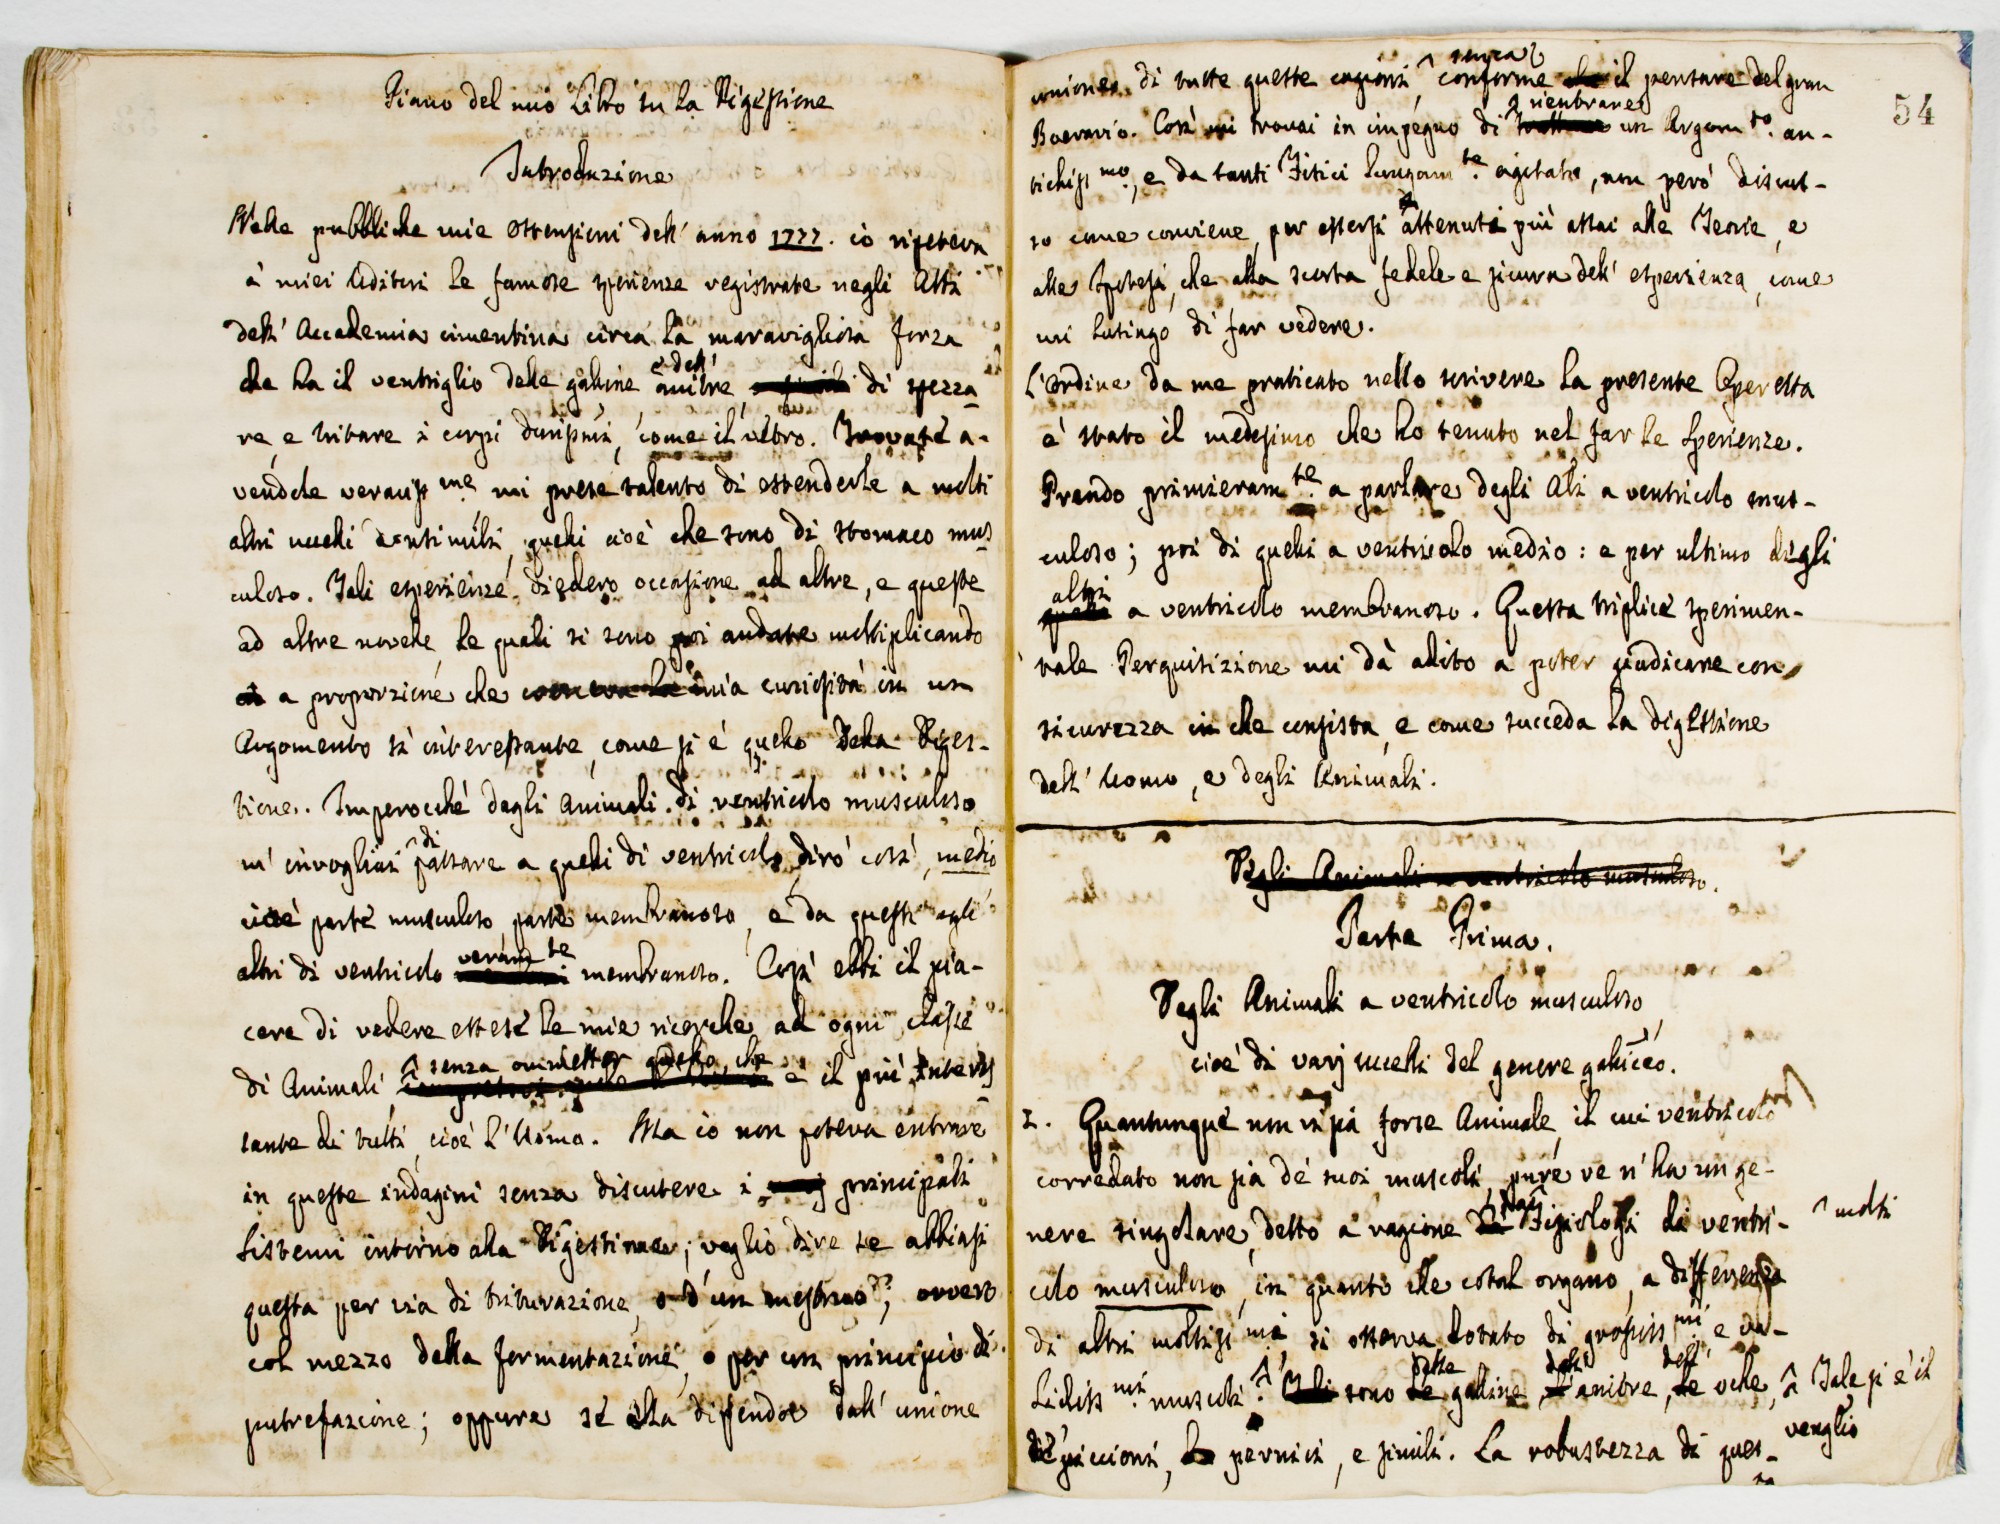 Piano del mio Libro su la Digestione
Introduzione
Nelle pubbliche mie Ostensioni dell' anno 1777. io ripeteva
a' miei Uditori le famose sperienze registrate negli Atti
dell' Accademia cimentina circa la maravigliosa forza
che ha il ventriglio delle galline e dell' anitre di spezza-
re, e tritare i corpi durissmi, come il vetro. Trovate a-
vendole veraciss.me mi prese talento di estenderle a molti
altri uccelli consimili, quelli cioè che sono di stomaco mus
culoso. Tali esperienze diedero occasione ad altre, e queste
ad altre novelle le quali si sono poi andate moltiplicando
a proporzione che cresceva la mia curiosità in un
Argomento sì interessante, come si è quello della Diges-
tione. Imperocché dagli animali di ventricolo musculoso
m' invogliai di passare a quelli di ventricolo, dirò così, medio
cioè parte musculoso parte membranoso, e da questi agli
altri di ventricolo veram.te membranoso. Così ebbi il pia-
cere di vedere estese le mie ricerche ad ogni classe
di Animali senza ommetter quello, che è il più interes
sante di tutti, cioè l' Uomo. Ma io non poteva entrare
in queste indagini senza discutere i principali
Sistemi intorno alla Digestione; voglio dire se abbiasi
questa per via di triturazione, o d' un mestruo; ovvero
col mezzo della fermentazione, o per un principio di
putrefazione; oppure se ella dipenda dall' unione
54
unione di tutte queste cagioni, conforme il pensare del gran
Boeravio. Così mi trovai in impegno di un Argom.to an-
tichiss.mo, e da tanti Fisici lungam.te agitato, non però discus-
so come conviene, per essersi attenuti più assai alle Teorie, e
alle Ipotesi, che alla scorta fedele e sicura dell' esperienza, come
mi lusingo di far vedere.
L'ordine da me praticato nello scrivere la presente Operetta
è stato il medesimo che ho tenuto nel far le sperienze.
Prendo primieram.te a parlare degli Ali a ventricolo mus-
culoso; poi di quelli a ventricolo medio: e per ultimo degli
altri a ventricolo membranoso. Questa triplice sperimen-
tale Perquisizione mi dà adito a poter giudicare con
sicurezza in che consista, e come succeda la digestione
dell' Uomo, e degli Animali.
Degli Animali a ventricolo musculoso.
Parte Prima.
Degli Animali a ventricolo musculoso
cioè di varj uccelli del genere gallinaceo.
1. Quantunque non vi sia forse Animale, il cui ventricolo
corredato non sia de' suoi muscoli, pure ve n' ha un ge-
nere singolare, detto a ragione Fisiologi di ventri-
molti
colo musculoso, in quanto che cotal organo, a differenza
di altri moltiss.mi, si osserva dotato di grossiss.mi, e va-
lidiss.mi muscoli. sono delle galline, dell' anitre, dell' oche,
Tale si è il
ventriglio
de' piccioni, pernici, e simili. La robustezza di ques-
ta